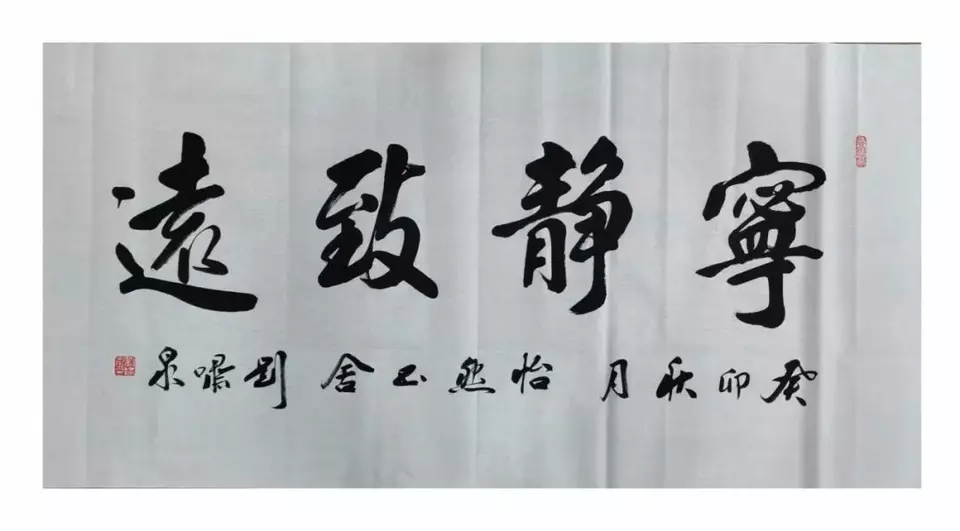 寧靜致遠
癸卯秋月 怡然書舍 劉嘯泉